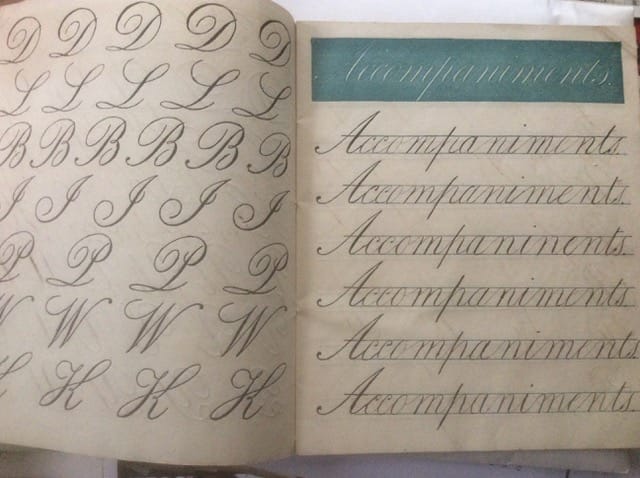 D D D D D
L L L L L
B B B B B B
I I I I I
P P P P
W W W W
K K K K
Accompaniments.
Accompaniments.
Accompaniments.
Accompaninents.
Accompaniments.
Accompaniments.
Accompaniments.